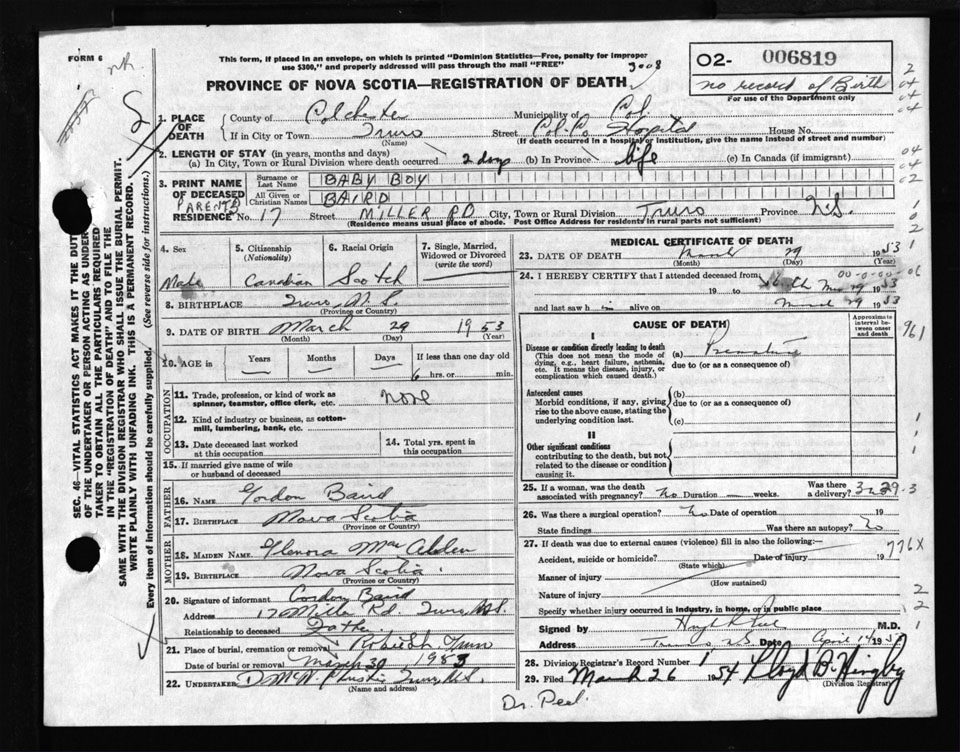 FORM 6
This form, if placed in an envelope, on which is printed "Dominion Statistics—Free, penalty for improper
use $300," and properly addressed will pass through the mail "FREE"
3008
O2- 006819
no record of Birth
For use of the Department only
PROVINCE OF NOVA SCOTIA—REGISTRATION OF DEATH
1. PLACE OF DEATH
County of Colchester Municipality of Col.
If in City or Town Truro Street Col. Co Hospital House No.
(Name) (If death occurred in a hospital or institution, give the name instead of street and number)
2. LENGTH OF STAY (in years, months and days)
(a) In City, Town or Rural Division where death occurred 2 days (b) In Province life (c) In Canada (if immigrant)
3. PRINT NAME OF DECEASED
Surname or Last Name BABY BOY
All Given or Christian Names BAIRD
PARENTS
RESIDENCE No. 17 Street MILLER RD City, Town or Rural Division Truro Province N.S.
(Residence means usual place of abode. Post Office Address for residents in rural parts not sufficient)
4. Sex Male
5. Citizenship (Nationality) Canadian
6. Racial Origin Scotch
7. Single, Married, Widowed or Divorced (write the word)
8. BIRTHPLACE Truro N.S.
(Province or Country)
9. DATE OF BIRTH March 29 1953
(Month) (Day) (Year)
10. AGE in Years Months Days If less than one day old
6 hrs. or min.
OCCUPATION
11. Trade, profession, or kind of work as spinner, teamster, office clerk, etc. None
12. Kind of industry or business, as cotton-mill, lumbering, bank, etc.
13. Date deceased last worked at this occupation
14. Total yrs. spent in this occupation
15. If married give name of wife or husband of deceased
FATHER
16. NAME Gordon Baird
17. BIRTHPLACE Nova Scotia
(Province or Country)
MOTHER
18. MAIDEN NAME Glenora Mac
19. BIRTHPLACE Nova Scotia
(Province or Country)
20. Signature of informant Gordon Baird
Address 17 Miller Rd. Truro N.S.
Relationship to deceased Father
21. Place of burial, cremation or removal Robie St. Truro
Date of burial or removal March 30 1953
22. UNDERTAKER Truro N.S.
(Name and address)
MEDICAL CERTIFICATE OF DEATH
23. DATE OF DEATH March 29 1953
(Month) (Day) (Year)
24. I HEREBY CERTIFY that I attended deceased from
19 to 29 1953
and last saw h im alive on March 29 1953
CAUSE OF DEATH
Approximate interval between onset and death
I
Disease or condition directly leading to death
(This does not mean the mode of dying, e.g., heart failure, asthenia, etc. It means the disease, injury, or complication which caused death.)
(a) Premature
due to (or as a consequence of)
Antecedent causes
Morbid conditions, if any, giving rise to the above cause, stating the underlying condition last.
(b)
due to (or as a consequence of)
(c)
II
Other significant conditions
contributing to the death, but not related to the disease or condition causing it.
25. If a woman, was the death associated with pregnancy? No Duration — weeks. Was there a delivery?
26. Was there a surgical operation? No Date of operation 19
State findings Was there an autopsy? No
27. If death was due to external causes (violence) fill in also the following:—
Accident, suicide or homicide? Date of injury 19
(State which)
Manner of injury
(How sustained)
Nature of injury
Specify whether injury occurred in industry, in home, or in public place
Signed by M.D.
Address Truro N.S. Date April 14 19
28. Division Registrar's Record Number 1
29. Filed March 26 1954
(Division Registrar)
Dr. Peel.
961
776X
SEC. 46—VITAL STATISTICS ACT MAKES IT THE DUTY
OF THE UNDERTAKER OR PERSON ACTING AS UNDER-
TAKER TO OBTAIN ALL THE PARTICULARS REQUIRED
IN THE "REGISTRATION OF DEATH" AND TO FILE THE
SAME WITH THE DIVISION REGISTRAR WHO SHALL ISSUE THE BURIAL PERMIT.
WRITE PLAINLY WITH UNFADING INK. THIS IS A PERMANENT RECORD.
Every item of information should be carefully supplied. (See reverse side for instructions.)